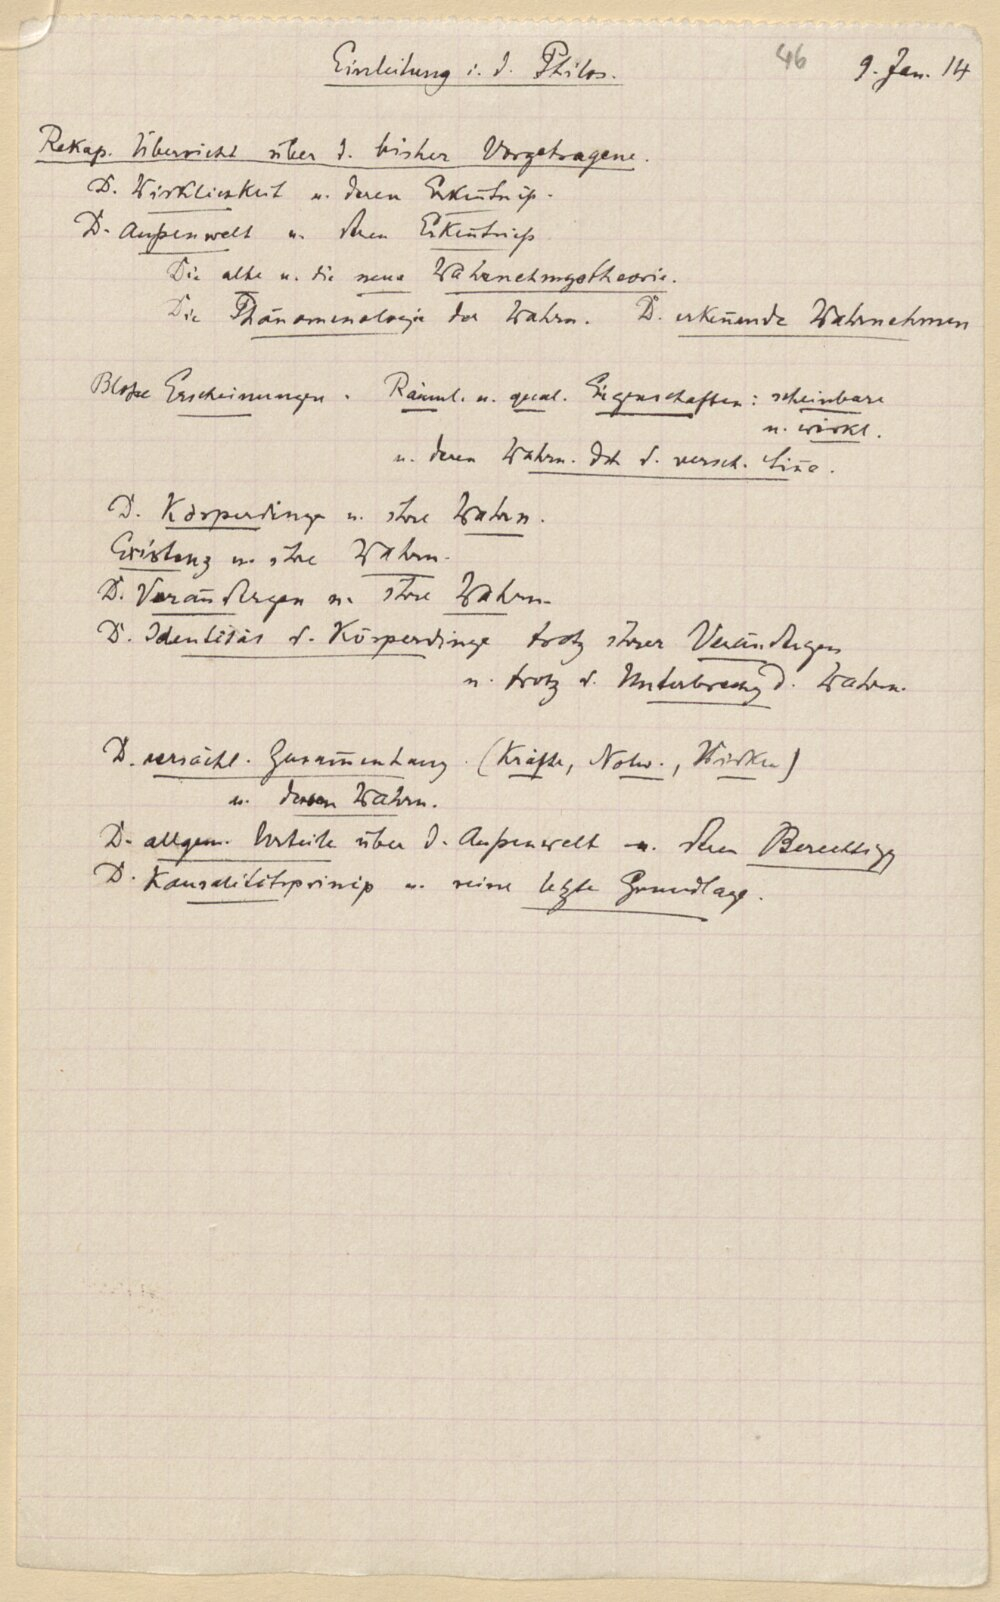 Einleitung i. d. Philos.
46
9. Jan. 14
Rekap. Übersicht über d. bisher Vorgetragene.
D. Wirklichkeit u. deren Erkenntniß.
D. Außenwelt u. deren Erkenntniß
Die alte u. die neue Wahrnehmgstheorie.
Die Phänomenologie der Wahrn. D. erkennende Wahrnehmen
Bloße Erscheinungen. Räuml. u. qual. Eigenschaften: scheinbare
u. wirkl.
u. deren Wahrn. dch d. versch. Sinne.
D. Körperdinge u. ihre Wahrn.
Existenz u. ihre Wahrn.
D. Verändergen u. ihre Wahrn.
D. Identität d. Körperdinge trotz ihrer Verändergen
u. trotz d. Unterbrechg d. Wahrn.
D. ursächl. Zusammenhang (Kräfte, Notw., Wirken)
u. deren Wahrn.
D. allgem. Urteile über d. Außenwelt u. deren Berechtigg
D. Kausalitätsprinzip u. seine letzte Grundlage.